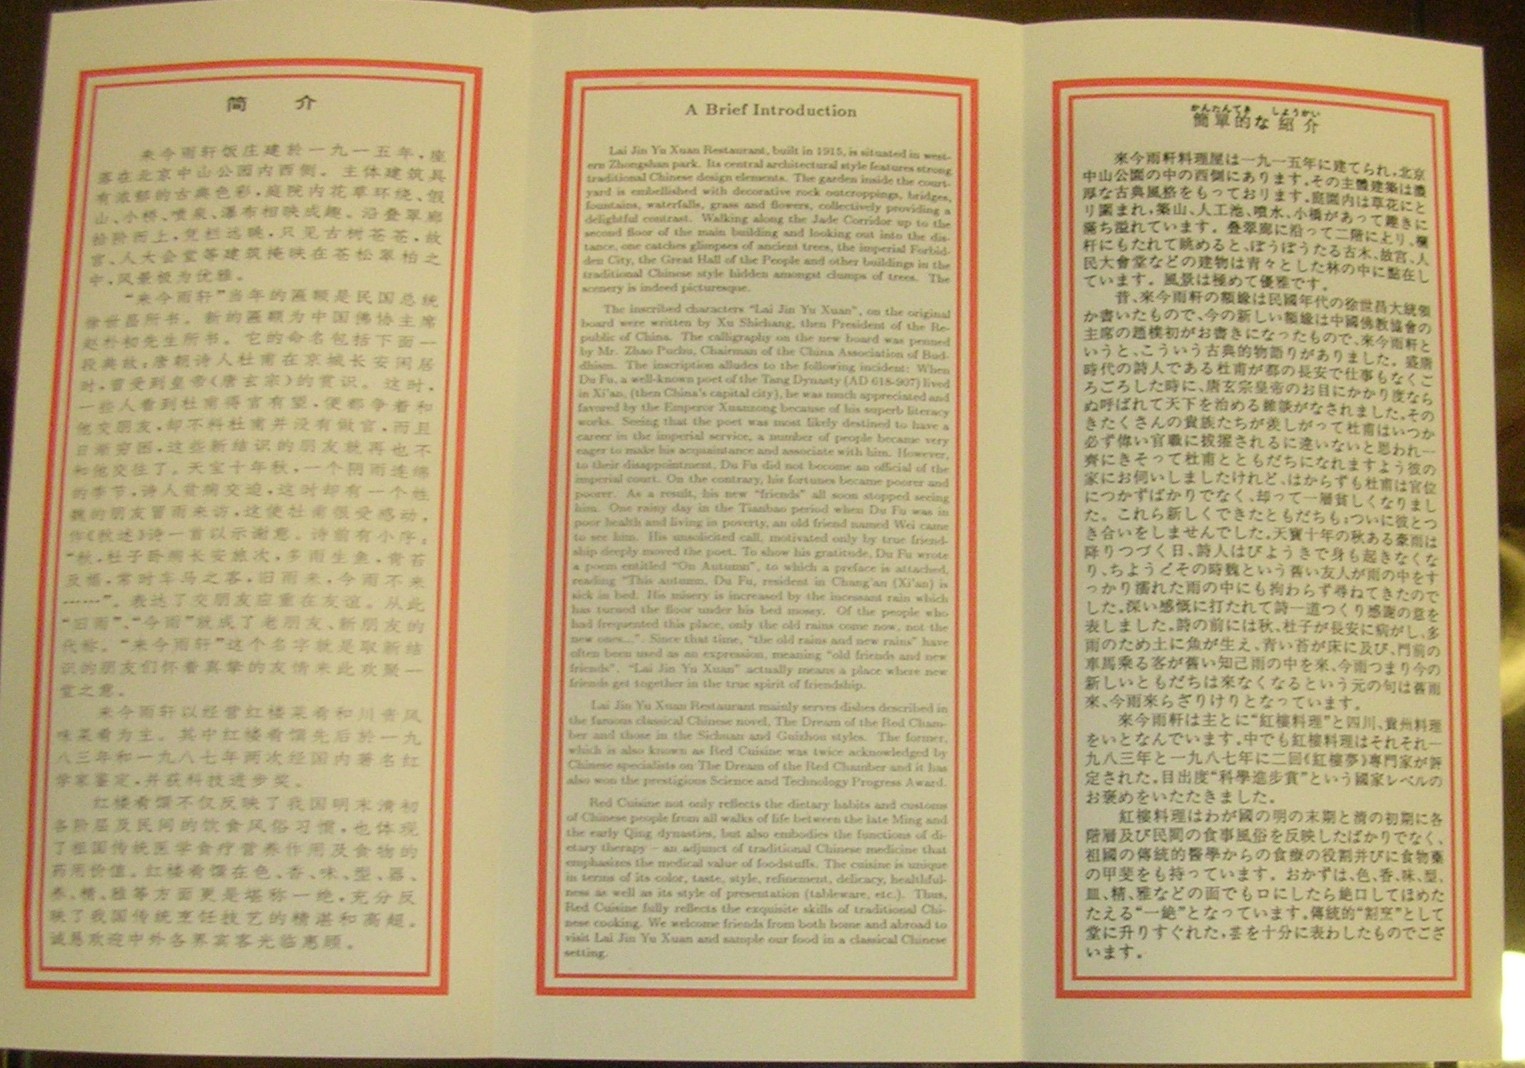 简 介
来今雨轩饭庄建於一九一五年，座
落在北京中山公园内西侧。主体建筑具
有浓郁的古典色彩，庭院内花草环绕、假
山、小桥、喷泉、瀑布相映成趣。沿叠翠廊
拾阶而上，凭栏远眺，只见古树苍苍，故
宫、人大会堂等建筑掩映在苍松翠柏之
中，风景极为优雅。
“来今雨轩”当年的匾额是民国总统
徐世昌所书。新的匾额为中国佛协主席
赵朴初先生所书。它的命名包括下面一
段典故：唐朝诗人杜甫在京城长安闲居
时，曾受到皇帝（唐玄宗）的赏识。这时，
一些人看到杜甫得官有望，便都争着和
他交朋友，却不料杜甫并没有做官，而且
日渐穷困，这些新结识的朋友就再也不
和他交往了。天宝十年秋，一个阴雨连绵
的季节，诗人贫病交迫，这时却有一个姓
魏的朋友冒雨来访，这使杜甫很受感动，
作《秋述》诗一首以示谢意。诗前有小序：
“秋，杜子卧病长安旅次，多雨生鱼，青苔
及榻，常时车马之客，旧雨来，今雨不来
……”。表达了交朋友应重在友谊。从此
“旧雨”、“今雨”就成了老朋友、新朋友的
代称。“来今雨轩”这个名字就是取新结
识的朋友们怀着真挚的友情来此欢聚一
堂之意。
来今雨轩以经营红楼菜肴和川贵风
味菜肴为主。其中红楼肴馔先后於一九
八三年和一九八七年两次经国内著名红
学家鉴定，并获科技进步奖。
红楼肴馔不仅反映了我国明末清初
各阶层及民间的饮食风俗习惯，也体现
了祖国传统医学食疗营养作用及食物的
药用价值。红楼肴馔在色、香、味、型、器、
养、精、雅等方面更是堪称一绝，充分反
映了我国传统烹饪技艺的精湛和高超。
诚恳欢迎中外各界宾客光临惠顾。
A Brief Introduction
Lai Jin Yu Xuan Restaurant, built in 1915, is situated in west-
ern Zhongshan park. Its central architectural style features strong
traditional Chinese design elements. The garden inside the court-
yard is embellished with decorative rock outcroppings, bridges,
fountains, waterfalls, grass and flowers, collectively providing a
delightful contrast. Walking along the Jade Corridor up to the
second floor of the main building and looking out into the dis-
tance, one catches glimpses of ancient trees, the imperial Forbid-
den City, the Great Hall of the People and other buildings in the
traditional Chinese style hidden amongst clumps of trees. The
scenery is indeed picturesque.
The inscribed characters “Lai Jin Yu Xuan”, on the original
board were written by Xu Shichang, then President of the Re-
public of China. The calligraphy on the new board was penned
by Mr. Zhao Puchu, Chairman of the China Association of Bud-
dhism. The inscription alludes to the following incident: When
Du Fu, a well-known poet of the Tang Dynasty (AD 618-907) lived
in Xi'an, (then China's capital city), he was much appreciated and
favored by the Emperor Xuanzong because of his superb literacy
works. Seeing that the poet was most likely destined to have a
career in the imperial service, a number of people became very
eager to make his acquaintance and associate with him. However,
to their disappointment, Du Fu did not become an official of the
imperial court. On the contrary, his fortunes became poorer and
poorer. As a result, his new “friends” all soon stopped seeing
him. One rainy day in the Tianbao period when Du Fu was in
poor health and living in poverty, an old friend named Wei came
to see him. His unsolicited call, motivated only by true friend-
ship deeply moved the poet. To show his gratitude, Du Fu wrote
a poem entitled “On Autumn”, to which a preface is attached,
reading “This autumn, Du Fu, resident in Chang'an (Xi'an) is
sick in bed. His misery is increased by the incessant rain which
has turned the floor under his bed mosey. Of the people who
had frequented this place, only the old rains come now, not the
new ones...”. Since that time, “the old rains and new rains” have
often been used as an expression, meaning “old friends and new
friends”. “Lai Jin Yu Xuan” actually means a place where new
friends get together in the true spirit of friendship.
Lai Jin Yu Xuan Restaurant mainly serves dishes described in
the famous classical Chinese novel, The Dream of the Red Cham-
ber and those in the Sichuan and Guizhou styles. The former,
which is also known as Red Cuisine was twice acknowledged by
Chinese specialists on The Dream of the Red Chamber and it has
also won the prestigious Science and Technology Progress Award.
Red Cuisine not only reflects the dietary habits and customs
of Chinese people from all walks of life between the late Ming and
the early Qing dynasties, but also embodies the functions of di-
etary therapy – an adjunct of traditional Chinese medicine that
emphasizes the medical value of foodstuffs. The cuisine is unique
in terms of its color, taste, style, refinement, delicacy, healthful-
ness as well as its style of presentation (tableware, etc.). Thus,
Red Cuisine fully reflects the exquisite skills of traditional Chi-
nese cooking. We welcome friends from both home and abroad to
visit Lai Jin Yu Xuan and sample our food in a classical Chinese
setting.
かんたんてき しょうかい
簡單的な 紹 介
來今雨軒料理屋は一九一五年に建てられ，北京
中山公園の中の西側にあります。その主體建築は濃
厚な古典風格をもっております。庭園内は草花にと
り圍まれ，築山、人工池、噴水、小橋があって趣きに
滿ち溢れています。叠翠廊に沿って二階に上り、欄
杆にもたれて眺めると、ぼうぼうたる古木、故宮、人
民大會堂などの建物は青々とした林の中に點在し
ています。風景は極めて優雅です。
昔、來今雨軒の額縁は民國年代の徐世昌大統領
か書いたもので、今の新しい額縁は中國佛教協會の
主席の趙樸初がお書きになったもので、來今雨軒と
いうと、こういう古典的物語りがありました。盛唐
時代の詩人である杜甫が都の長安で仕事もなくご
ろごろした時に、唐玄宗皇帝のお目にかかり度なら
ぬ呼ばれて天下を治める雜談がなされました。その
きたくさんの貴族たちが羨しがって杜甫はいつか
必ず偉い官職に拔擢されるに違いないと思われ一
齊にきそって杜甫とともだちになれますよう彼の
家にお伺いしましたけれど、はからずも杜甫は官位
につかずばかりでなく、却って一層貧しくなりまし
た。これら新しくできたともだちも、ついに彼とつ
き合いをしませんでした。天寶十年の秋ある豪雨は
降りつづく日、詩人はびようきで身も起きなくな
り、ちようどその時魏という舊い友人が雨の中をす
っかり濡れた雨の中にも拘わらず尋ねてきたので
した。深い感慨に打たれて詩一道つくり感謝の意を
表しました。時の前には秋、杜子が長安に病がし、多
雨のため土に魚が生え、青い苔が床に及び、門前の
車馬乘る客が舊い知己雨の中を來、今雨つまり今の
新しいともだちは來なくなるという元の句は舊雨
來、今雨來らざりけりとなっています。
來今雨軒は主とに“紅樓料理”と四川、貴州料理
をいとなんでいます。中でも紅樓料理はそれそれ一
九八三年と一九八七年に二回《紅樓夢》專門家が評
定された。目出度“科學進步賞”という國家レベルの
お褒めをいたたきました。
紅樓料理はわが國の明の末期と清の初期に各
階層及び民間の食事風俗を反映したばかりでなく、
祖國の傳統的醫學からの食療の役割并びに食物藥
の甲斐をも持っています。おかずは、色、香、味、型、
皿、精、雅などの面でも口にしたら絶口してほめた
たえる“一絶”となっています。傳統的“割烹”として
堂に升りすぐれた，芸を十分に表わしたものでござ
います。